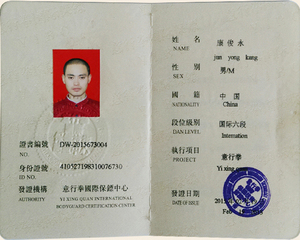 證書編號 DW-2015673004
NO.
身份證號 410527198310076730
ID NO.
發證機構 意行拳國際保鏢中心
AUTHORITY YI XING QUAN INTERNATIONAL
BODYGUARD CERTIFICATION CENTER
姓名 康俊永
NAME jun yong kang
性別 男/M
SEX
國籍 中国
NATIONALITY China
段位級别 国际六段
DAN LEVEL Internation
执行項目 意行拳
PROJECT Yi xing
發證日期
DATE OF ISSUE Feb